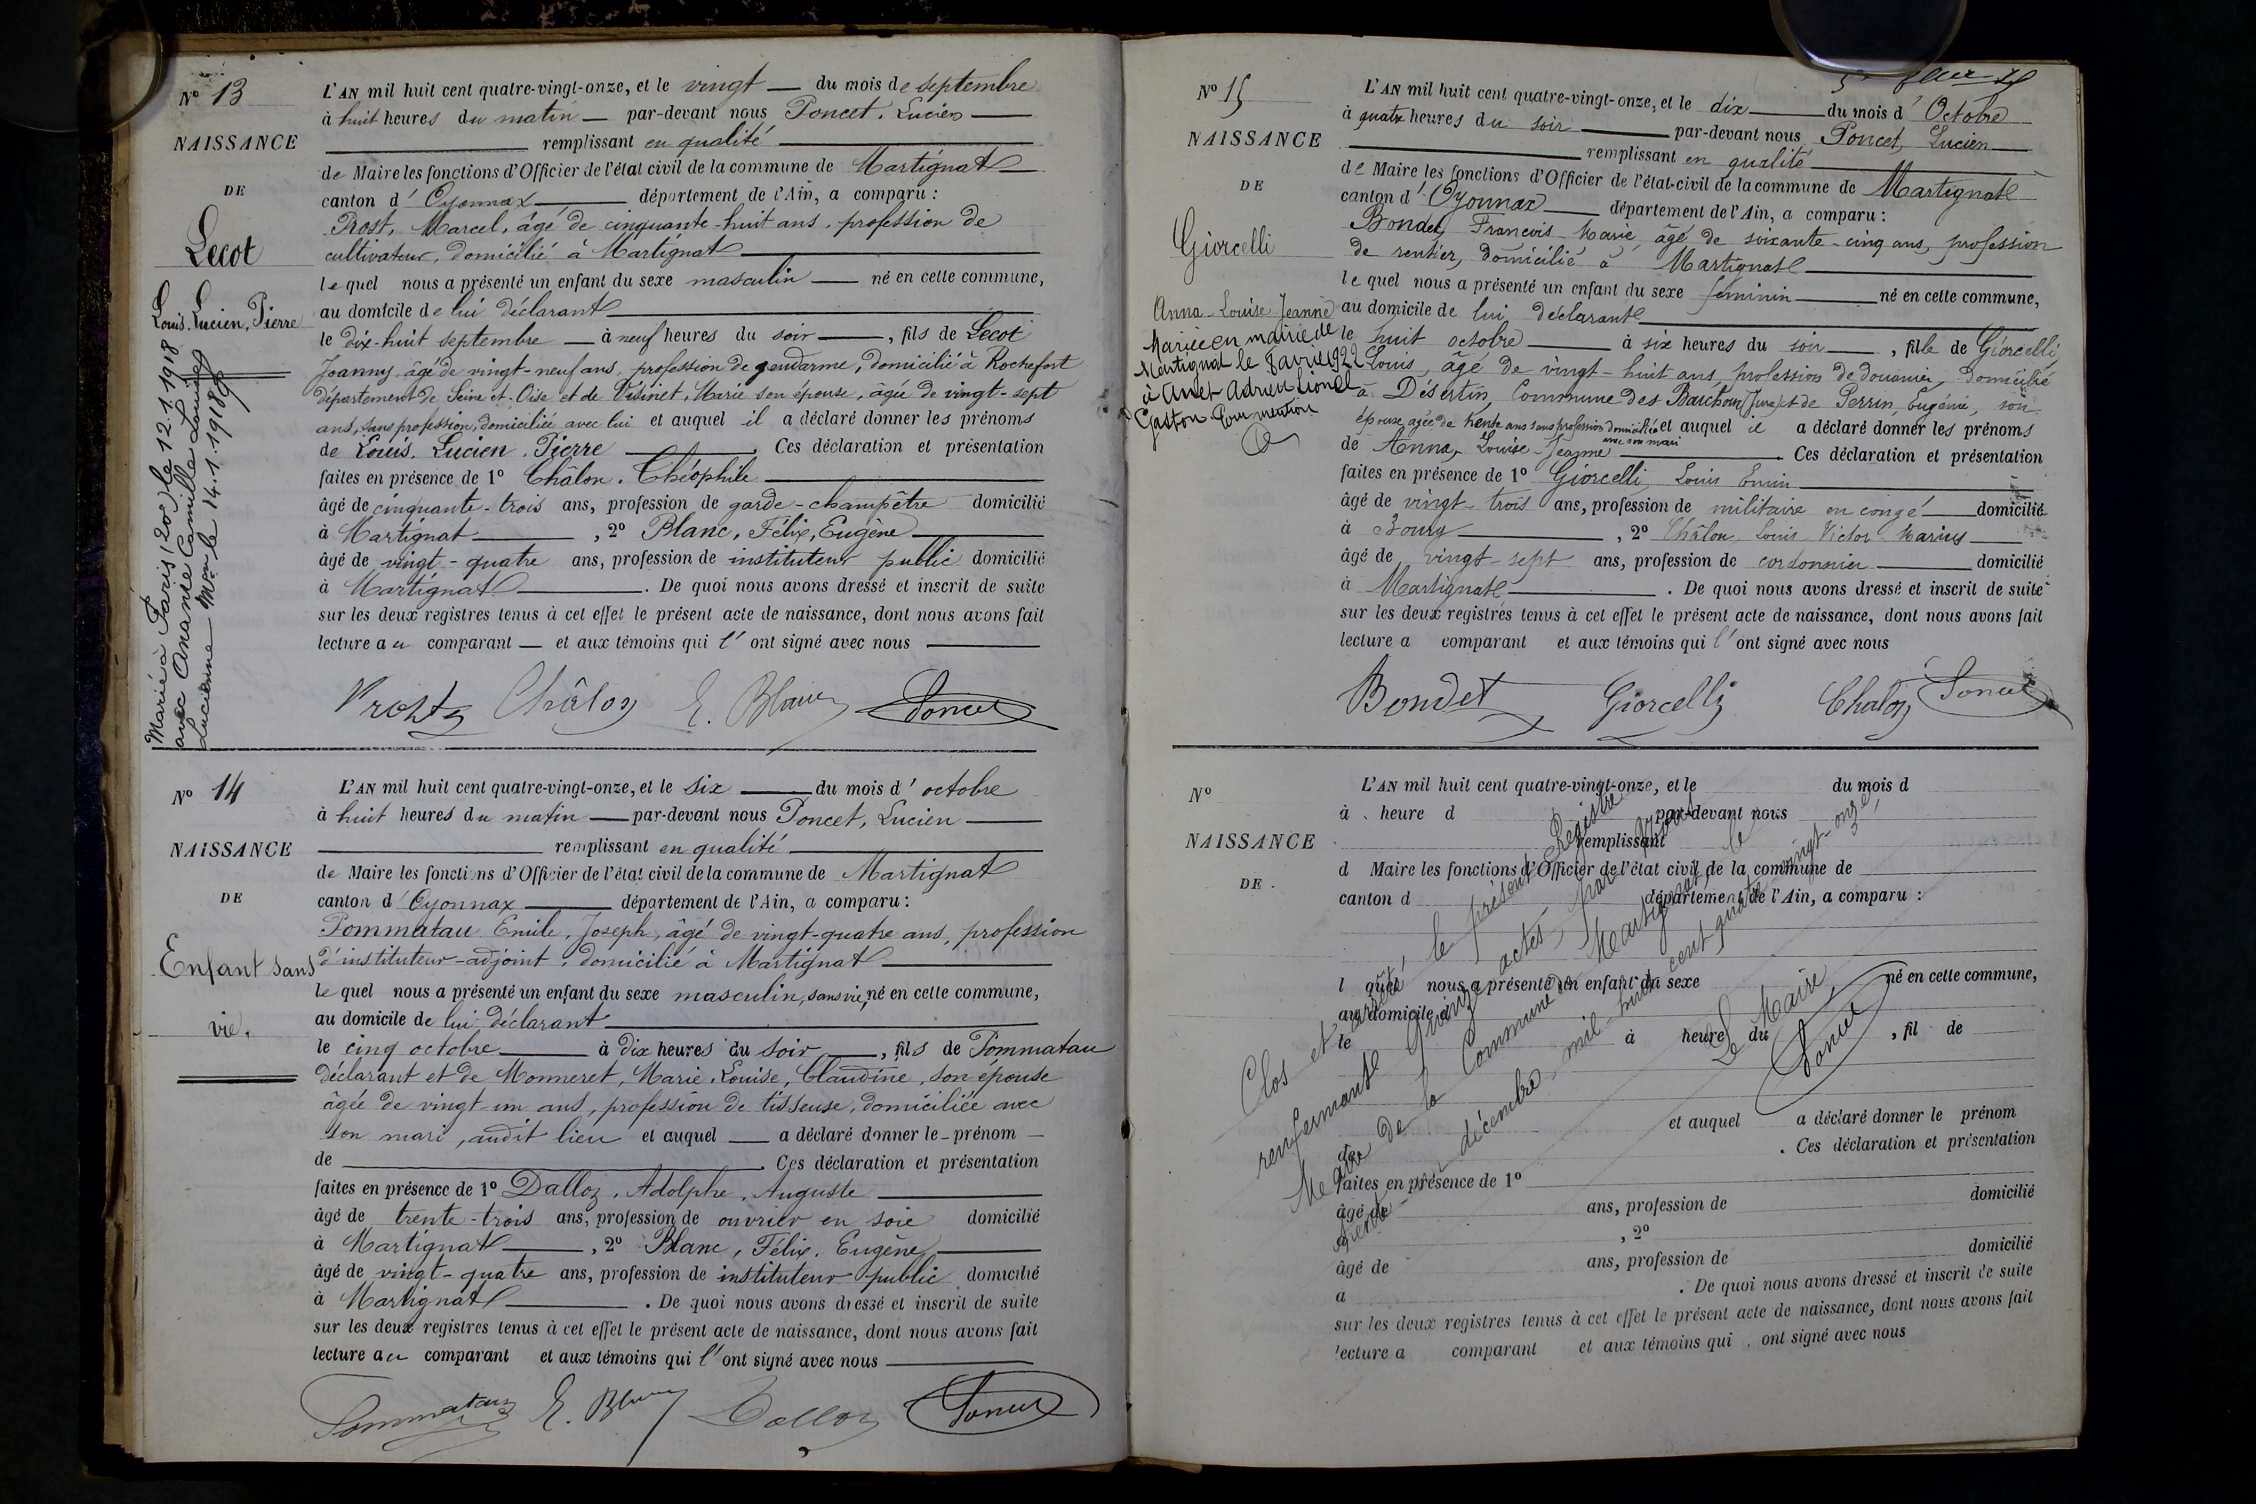 N° 13
NAISSANCE
DE
Lecot
Louis, Lucien, Pierre
Marié à Paris (20e) le 12.1.1918
avec Amante Camille Louise
Lucienne Mon le 14.1.1918
L'AN mil huit cent quatre-vingt-onze, et le vingt du mois de septembre
à huit heures du matin par-devant nous Poncet, Lucien
remplissant en qualité
de Maire les fonctions d'Officier de l'état civil de la commune de Martignat
canton d'Oyonnax département de l'Ain, a comparu :
Prost, Marcel, âgé de cinquante-huit ans, profession de
cultivateur, domicilié à Martignat
lequel nous a présenté un enfant du sexe masculin né en cette commune,
au domicile de lui déclarant
le dix-huit septembre à neuf heures du soir, fils de Lecot
Joanny âgé de vingt-neuf ans, profession de gendarme, domicilié à Rochefort
département de Seine et-Oise et de Vésinet, Marie son épouse, âgée de vingt-sept
ans, sans profession, domiciliée avec lui et auquel il a déclaré donner les prénoms
de Louis, Lucien, Pierre. Ces déclaration et présentation
faites en présence de 1° Châlon, Théophile
âgé de cinquante-trois ans, profession de garde-champêtre domicilié
à Martignat, 2° Blanc, Félix, Eugène
âgé de vingt-quatre ans, profession de instituteur public domicilié
à Martignat. De quoi nous avons dressé et inscrit de suite
sur les deux registres tenus à cet effet le présent acte de naissance, dont nous avons fait
lecture au comparant et aux témoins qui l'ont signé avec nous
Prost Châlon E. Blanc Poncet
N° 14
NAISSANCE
DE
Enfant sans
vie.
L'AN mil huit cent quatre-vingt-onze, et le six du mois d'octobre
à huit heures du matin par-devant nous Poncet, Lucien
remplissant en qualité
de Maire les fonctions d'Officier de l'état civil de la commune de Martignat
canton d'Oyonnax département de l'Ain, a comparu :
Pommatau Emile, Joseph, âgé de vingt-quatre ans, profession
d'instituteur-adjoint, domicilié à Martignat
lequel nous a présenté un enfant du sexe masculin, sans vie, né en cette commune,
au domicile de lui déclarant
le cinq octobre à dix heures du soir, fils de Pommatau
déclarant et de Monneret, Marie Louise, Claudine, son épouse
âgée de vingt-un ans, profession de tisseuse, domiciliée avec
son mari, audit lieu et auquel a déclaré donner le prénom
de. Ces déclaration et présentation
faites en présence de 1° Dalloz, Adolphe, Auguste
âgé de trente-trois ans, profession de ouvrier en soie domicilié
à Martignat, 2° Blanc, Félix, Eugène
âgé de vingt-quatre ans, profession de instituteur public domicilié
à Martignat. De quoi nous avons dressé et inscrit de suite
sur les deux registres tenus à cet effet le présent acte de naissance, dont nous avons fait
lecture au comparant et aux témoins qui l'ont signé avec nous
Pommatau E. Blanc Dalloz Poncet
N° 15
NAISSANCE
DE
Giorcelli
Anna-Louise Jeanne
Mariée en mairie de
Martignat le 8 avril 1922
à Amet Adrien Lionel
Gaston Pour mention
L'AN mil huit cent quatre-vingt-onze, et le dix du mois d'Octobre
à quatre heures du soir par-devant nous Poncet, Lucien
remplissant en qualité
de Maire les fonctions d'Officier de l'état-civil de la commune de Martignat
canton d'Oyonnax département de l'Ain, a comparu :
Bondet, François-Marie, âgé de soixante-cinq ans, profession
de rentier, domicilié à Martignat
lequel nous a présenté un enfant du sexe féminin né en cette commune,
au domicile de lui déclarant
le huit octobre à six heures du soir, fille de Giorcelli
Louis, âgé de vingt-huit ans, profession de douanier, domicilié
à Désertin, Commune des Bouchoux (Jura) et de Perrin, Eugénie, son
épouse agée de trente ans sans profession domiciliée avec son mari et auquel il a déclaré donner les prénoms
de Anna, Louise-Jeanne. Ces déclaration et présentation
faites en présence de 1° Giorcelli Louis
âgé de vingt-trois ans, profession de militaire en congé domicilié
à Bourg, 2° Châlon Louis Victor Marius
âgé de vingt-sept ans, profession de cordonnier domicilié
à Martignat. De quoi nous avons dressé et inscrit de suite
sur les deux registres tenus à cet effet le présent acte de naissance, dont nous avons fait
lecture a comparant et aux témoins qui l'ont signé avec nous
Bondet Giorcelli Chalon Poncet
N°
NAISSANCE
DE
L'AN mil huit cent quatre-vingt-onze, et le du mois d
à heure d par-devant nous
remplissant
d Maire les fonctions d'Officier de l'état civil de la commune de
canton d département de l'Ain, a comparu :
l quel nous a présenté un enfant du sexe né en cette commune,
au domicile d
le à heure du, fil de
et auquel a déclaré donner le prénom
de. Ces déclaration et présentation
faites en présence de 1°
âgé de ans, profession de domicilié
à, 2°
âgé de ans, profession de domicilié
à. De quoi nous avons dressé et inscrit de suite
sur les deux registres tenus à cet effet le présent acte de naissance, dont nous avons fait
lecture a comparant et aux témoins qui ont signé avec nous
Clos et arrêté le présent Registre
renfermant quinze actes, par nous
Maire de la Commune de Martignat, le
trente-un décembre mil huit cent quatre vingt-onze,
Le Maire
Poncet